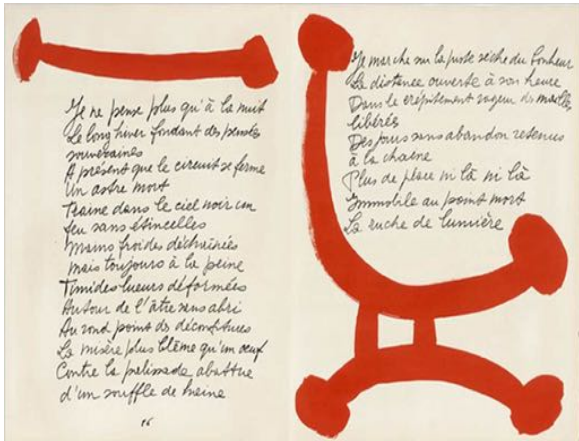 Je ne pense plus qu'à la nuit
Le long hiver fondant des pensées
souveraines
A présent que le circuit se ferme
Un astre mort
Traîne dans le ciel noir un
feu sans étincelles
Mains froides déchaînées
mais toujours à la peine
Timides lueurs déformées
Autour de l'âtre sans abri
Au rond point des déconfitures
La misère plus blême qu'un œuf
Contre la palissade abattue
d'un souffle de haine
96
Je marche sur la piste sèche du bonheur
La distance ouverte à son heure
Dans le crépitement rageur des mailles
libérées
Des jours sans abandon retenus
à la chaîne
Plus de place ni là ni là
Immobile au point mort
La ruche de lumière